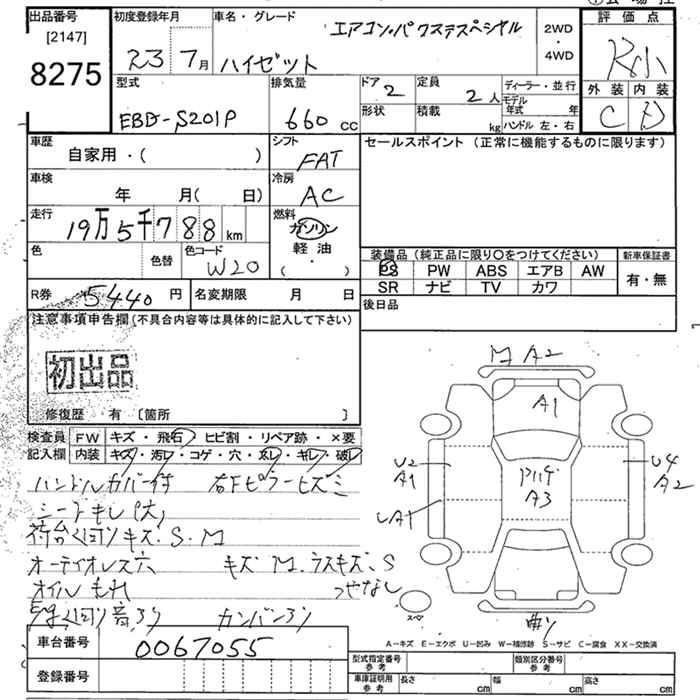 出品番号
[2147]
8275
初度登録年月
23 7月
車名・グレード
エアコン・パワステスペシャル
ハイゼット
2WD
・
4WD
評価点
外装 内装
C D
型式
EBD-S201P
排気量
660 cc
ドア
2
定員
2人
ディーラー・並行
モデル年式 年
形状
積載
kg
ハンドル 左・右
車歴
自家用・( )
シフト
FAT
セールスポイント (正常に機能するものに限ります)
車検
年 月( 日)
冷房
AC
走行
19万5千788km
燃料
ガソリン
・
軽油
( )
色
色替
色コード
W20
装備品 (純正品に限り〇をつけてください)
新車保証書
PS PW ABS エアB AW
SR ナビ TV カワ
有・無
R券 5440円
名変期限 月 日
後日品
注意事項申告欄 (不具合内容等は具体的に記入して下さい)
初出品
修復歴 有 〔箇所 〕
検査員
記入欄
FW キズ・飛石 ヒビ割・リペア跡・×要
内装 キズ・汚レ・コゲ・穴・スレ・キレ・破レ
ハンドルカバー付 右Fピラーヒズミ
シートキレ(大)
荷台回りキズ.S.M
オーディオレス穴 キズM.ラスキズ.S
オイルもれ つやなし
音アリ カンバンアリ
M A2
A1
U2
A1
A3
U4
A2
スペア
曲り
A-キズ E-エクボ U-凹み W-補修跡 S-サビ C-腐食 XX-交換済
車台番号 0067055
登録番号
型式指定番号
参考
類別区分番号
参考
車庫証明用
参考
長さ cm 幅 cm 高さ cm